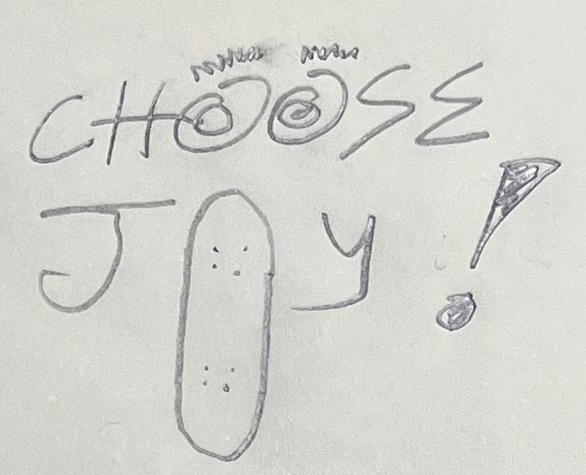 CHOOSE
JOY!